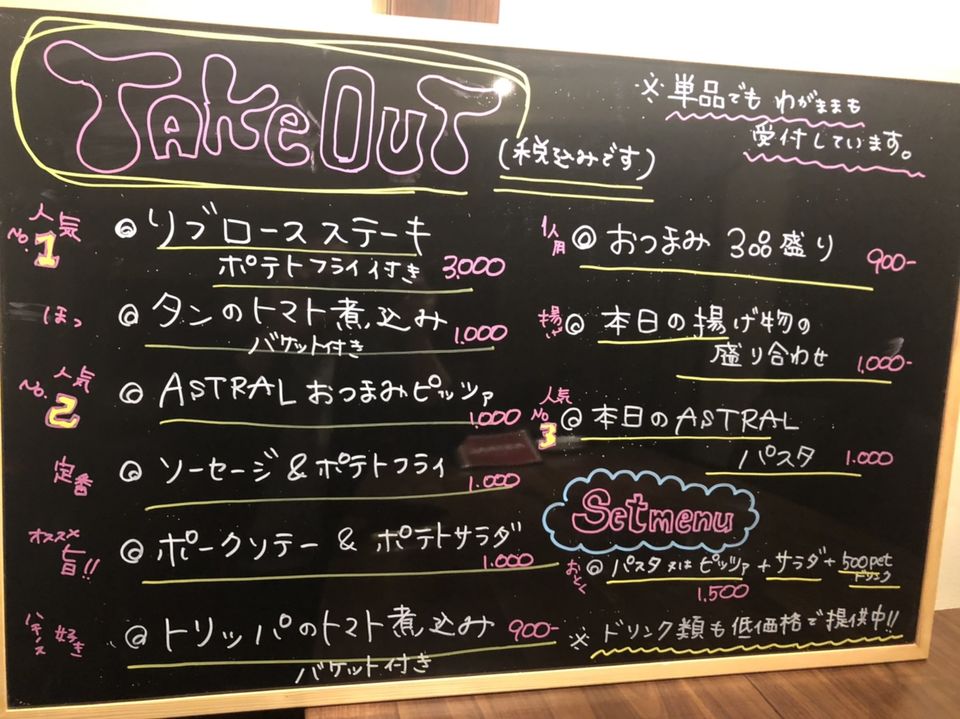 Take Out
(税込みです)
※単品でも わがままも
受付しています。
人気
No.1
◎リブロースステーキ
ポテトフライ付き 3,000
ほっ
◎タンのトマト煮込み
バケット付き 1,000
人気
No.2
◎ASTRALおつまみピッツァ
1,000
定番
◎ソーセージ&ポテトフライ
1,000
オススメ
旨!!
◎ポークソテー & ポテトサラダ
1,000
好き
◎トリッパのトマト煮込み 900-
バケット付き
1人用
◎おつまみ 3品盛り 900-
揚
◎本日の揚げ物の
盛り合わせ 1,000-
人気
No.3
◎本日のASTRAL
パスタ 1,000
Setmenu
おとく
◎パスタ又はピッツァ+サラダ+500pet
ドリンク
1,500
※ドリンク類も低価格で提供中!!